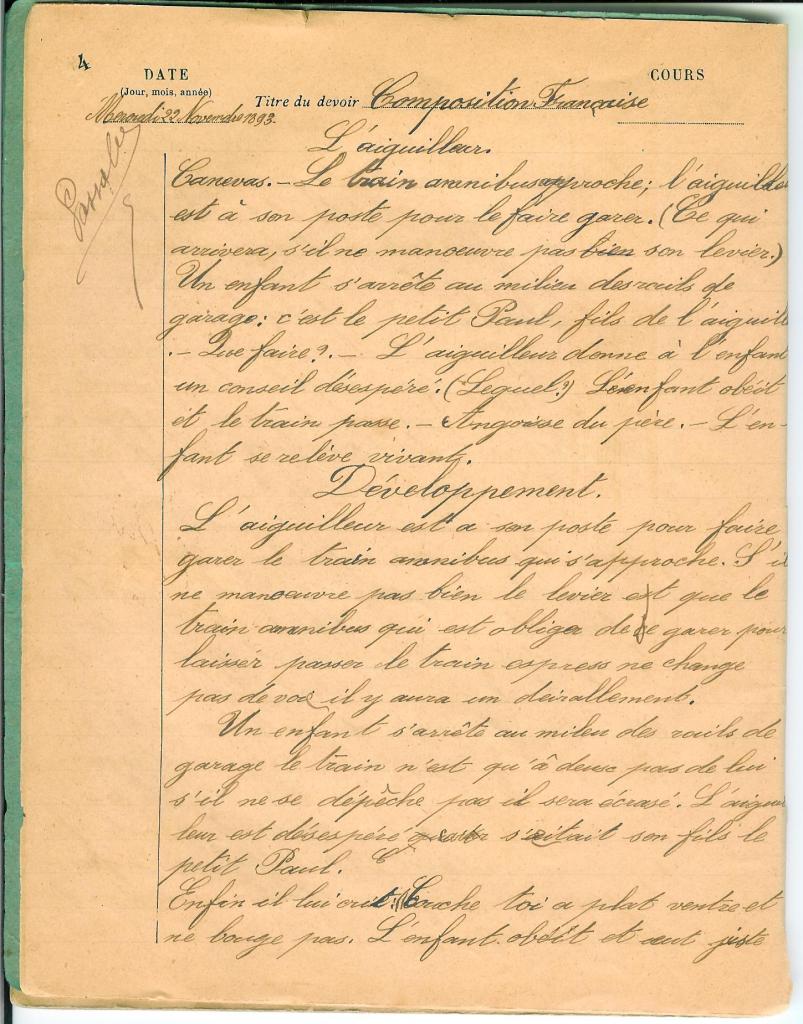 4
DATE
(Jour, mois, année)
COURS
Titre du devoir Composition Française
Mercredi 22 Novembre 1893.
Passable
L'aiguilleur.
Canevas. — Le train omnibus approche; l'aiguilleu
est à son poste pour le faire garer. (Ce qui
arrivera, s'il ne manoeuvre pas bien son levier.)
Un enfant s'arrête au milieu des rails de
garage: c'est le petit Paul, fils de l'aiguill
. — Que faire? — L'aiguilleur donne à l'enfant
un conseil désespéré. (Lequel?) L'enfant obéit
et le train passe. — Angoisse du père. — L'en-
fant se relève vivant.
Développement.
L'aiguilleur est a son poste pour faire
garer le train omnibus qui s'approche. S'il
ne manoeuvre pas bien le levier est que le
train omnibus qui est obliger de se garer pour
laisser passer le train express ne change
pas de voie il y aura un deirallement.
Un enfant s'arrête au mileu des rails de
garage le train n'est qu'à deux pas de lui
s'il ne se dépêche pas il sera écrasé. L'aigui
leur est désespéré s'était son fils le
petit Paul.
Enfin il lui crit: Couche toi a plat ventre et
ne bouge pas. L'enfant obéit et eut juste